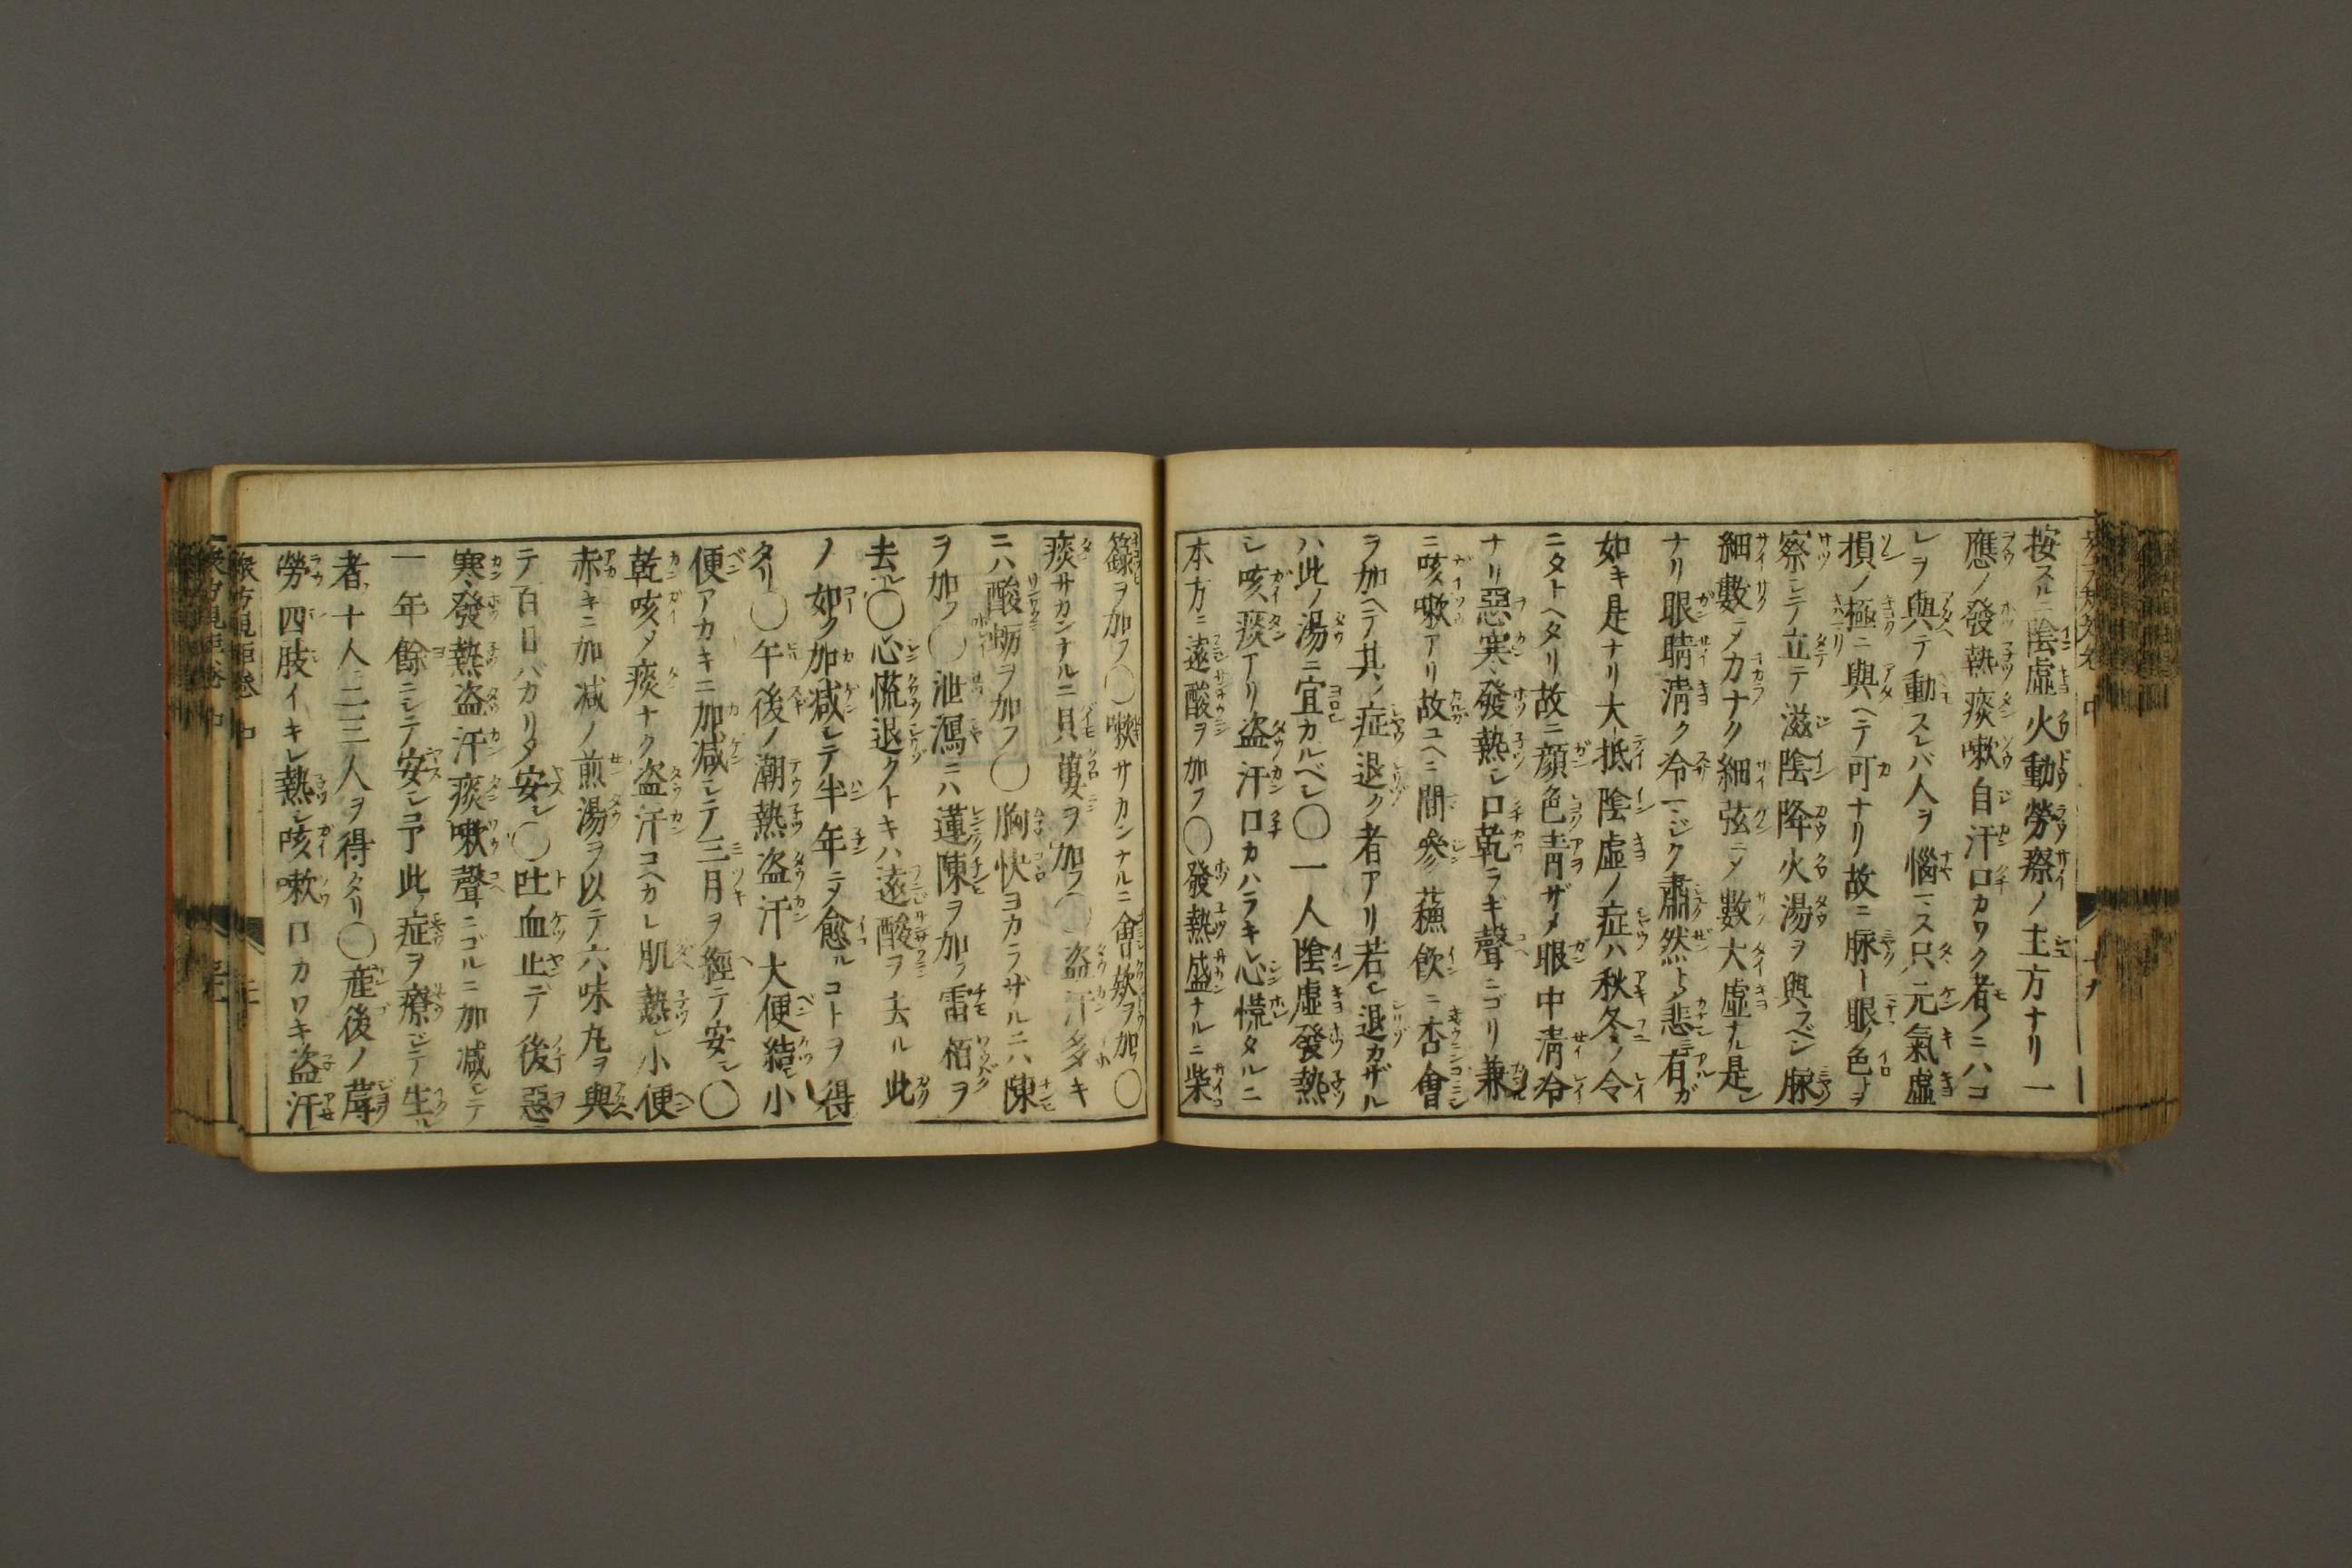 按スルニ陰虛火動勞瘵ノ主方ナリ一
應ノ發熱痰嗽自汗口カワク者ノニハコ
レヲ與テ動スレバ人ヲ惱マス只元氣虛
損ノ極ニ與ヘテ可ナリ故ニ脉ト眼ノ色トヲ
察シテ立テ滋陰降火湯ヲ與ラベシ脉
細數ヲカナク細弦ニメ數大虛ナル是レ
ナリ眼睛淸ク冷マジク肅然トメ悲ミ有ガ
如キ是ナリ大抵陰虛ノ症ハ秋冬ノ令
ニタトヘタリ故ニ顔色靑ザメ眼中淸冷
ナリ惡寒發熱シ口乾ラギ聲ニゴリ兼
ニ咳嗽アリ故ユヘニ間參蘓飮ニ杏會
ヲ加ヘテ其ノ症退ク者アリ若シ退カザル
ハ此ノ湯ニ宜カルベシ〇一人陰虛發熱
シ咳痰アリ盜汗口カハラキレ心慌タルニ
本方ニ遠酸ヲ加フ〇發熱盛ナルニ柴
籙ヲ加フ〇嗽サカンナルニ會欵ヲ加フ〇
痰サカンナルニ貝蔞ヲ加フ〇盜汗多キ
ニハ酸蛎ヲ加フ〇胸快ヨカラザルニハ陳
ヲ加フ〇泄瀉ニハ蓮陳ヲ加ヲ雷栢ヲ
去ル〇心慌退クトキハ遠酸ヲ去ル此
ノ如ク加减シテ半年ニメ愈ルコトヲ得
タリ〇午後ノ潮熱盜汗大便結シ小
便アカキニ加减シテ三月ヲ經テ安シ〇
乾咳メ痰ナク盜汗コヘカレ肌熱シ小便
赤キニ加减ノ煎湯ヲ以テ六味丸ヲ與
テ百日バカリメ安シ〇吐血止デ後惡
寒發熱盜汗痰嗽聲ニゴルニ加减シテ
一年餘ニシテ安シ予此ノ症ヲ療ジテ生ル
者十人ニ二三人ヲ得タリ〇産後ノ蓐
勞四肢イキレ熱シ咳嗽口カワキ盜汗
衆方規矩卷中